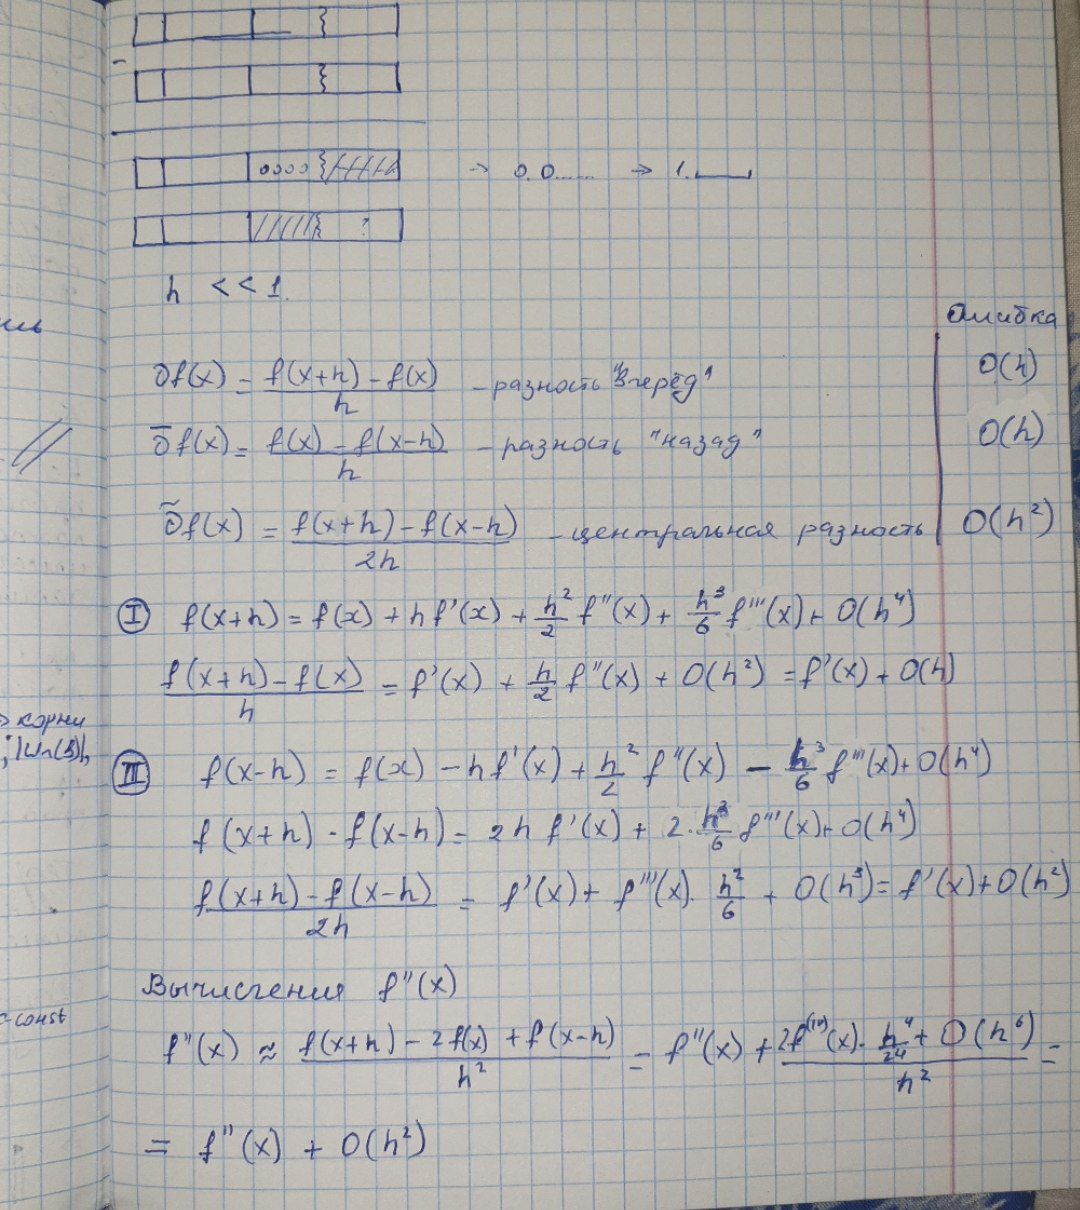 0000 → 0.0...... → 1.
?
h << 1.
Ошибка
∂f(x) = f(x+h) - f(x) / h - разность "вперёд" O(h)
∂̄f(x) = f(x) - f(x-h) / h - разность "назад" O(h)
∂̃f(x) = f(x+h) - f(x-h) / 2h - центральная разность O(h²)
I f(x+h) = f(x) + hf'(x) + h²/2 f''(x) + h³/6 f'''(x) + O(h⁴)
f(x+h) - f(x) / h = f'(x) + h/2 f''(x) + O(h²) = f'(x) + O(h)
корни
III f(x-h) = f(x) - hf'(x) + h²/2 f''(x) - h³/6 f'''(x) + O(h⁴)
f(x+h) - f(x-h) = 2h f'(x) + 2·h³/6 f'''(x) + O(h⁴)
f(x+h) - f(x-h) / 2h = f'(x) + f'''(x)·h²/6 + O(h³) = f'(x) + O(h²)
Вычисления f''(x)
const
f''(x) ≈ f(x+h) - 2f(x) + f(x-h) / h² = f''(x) + 2f⁽ᴵⱽ⁾(x)·h⁴/24 + O(h⁶) / h² =
= f''(x) + O(h²)